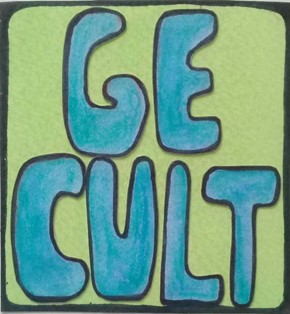 GE
CULT